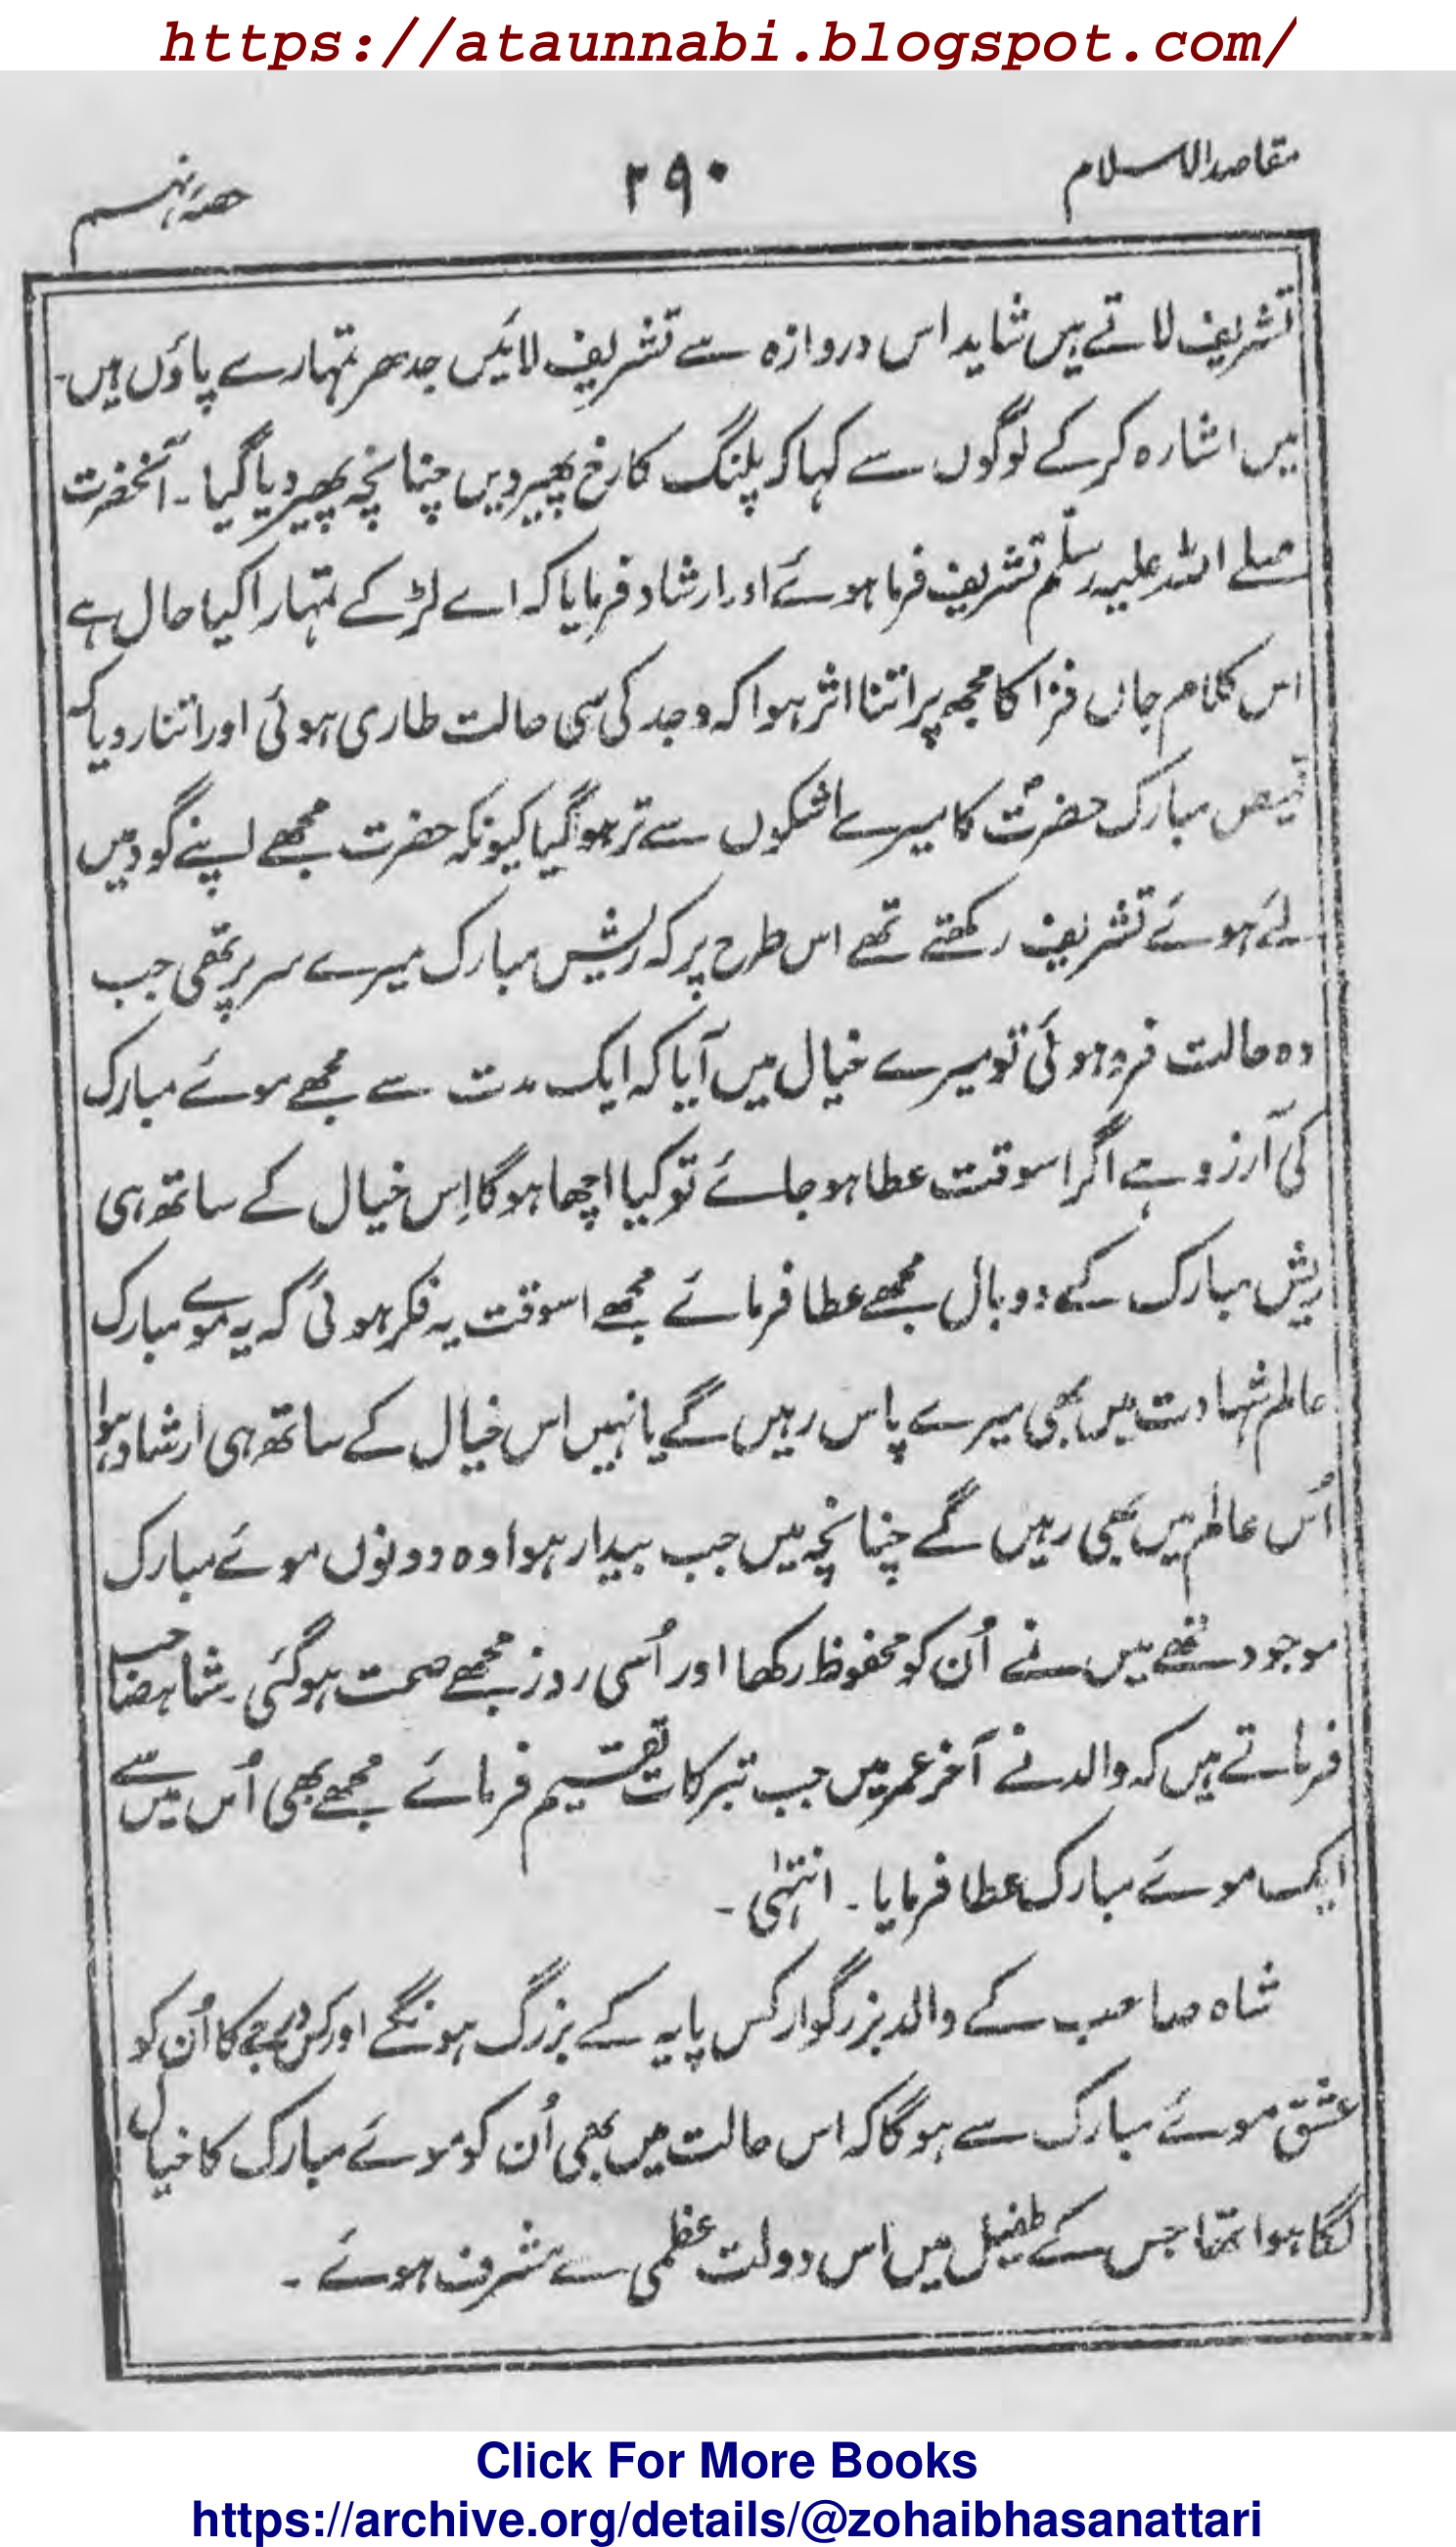 https://ataunnabi.blogspot.com/
مقاصدالاسلام ۲۹۰ حصہ نہم
تشریف لاتے ہیں شاید اس دروازہ سے تشریف لائیں جدھر تمہارے پاؤں ہیں۔
میں اشارہ کرکے لوگوں سے کہا کہ پلنگ کا رخ پھیر دیں چنانچہ پھیر دیا گیا۔ آنحضرت
صلے اللہ علیہ وسلم تشریف فرما ہوئے اور ارشاد فرمایا کہ اے لڑکے تمہارا کیا حال ہے
اس کلام جاں فزا کا مجھ پر اتنا اثر ہوا کہ وجد کی سی حالت طاری ہوئی اور اتنا رویا کہ
قمیص مبارک حضرت کا میرے اشکوں سے تر ہوگیا کیونکہ حضرت مجھے اپنے گود میں
لئے ہوئے تشریف رکھتے تھے اس طرح پر کہ ریش مبارک میرے سر پر تھی جب
وہ حالت فرو ہوئی تو میرے خیال میں آیا کہ ایک مدت سے مجھے موئے مبارک
کی آرزو ہے اگر اسوقت عطا ہو جائے تو کیا اچھا ہوگا اِس خیال کے ساتھ ہی
ریش مبارک کے دو بال مجھے عطا فرمائے مجھے اسوقت یہ فکر ہوئی کہ یہ موے مبارک
عالم شہادت میں بھی میرے پاس رہیں گے یا نہیں اس خیال کے ساتھ ہی ارشاد ہوا
اُس عالم میں بھی رہیں گے چنانچہ میں جب بیدار ہوا وہ دونوں موئے مبارک
موجود تھے میں نے اُن کو محفوظ رکھا اور اُسی روز مجھے صحت ہوگئی۔ شاہصاحب
فرماتے ہیں کہ والد نے آخر عمر میں جب تبرکات تقسیم فرمائے مجھے بھی اُس میں سے
ایک موئے مبارک عطا فرمایا۔ انتہٰی۔
شاہ صاحب کے والد بزرگوار کس پایہ کے بزرگ ہونگے اور کس درجے کا اُن کو
عشق موئے مبارک سے ہوگا کہ اس حالت میں بھی اُن کو موئے مبارک کا خیال
لگا ہوا تھا جس کے طفیل میں اس دولت عظمی سے مشرف ہوئے۔
Click For More Books
https://archive.org/details/@zohaibhasanattari